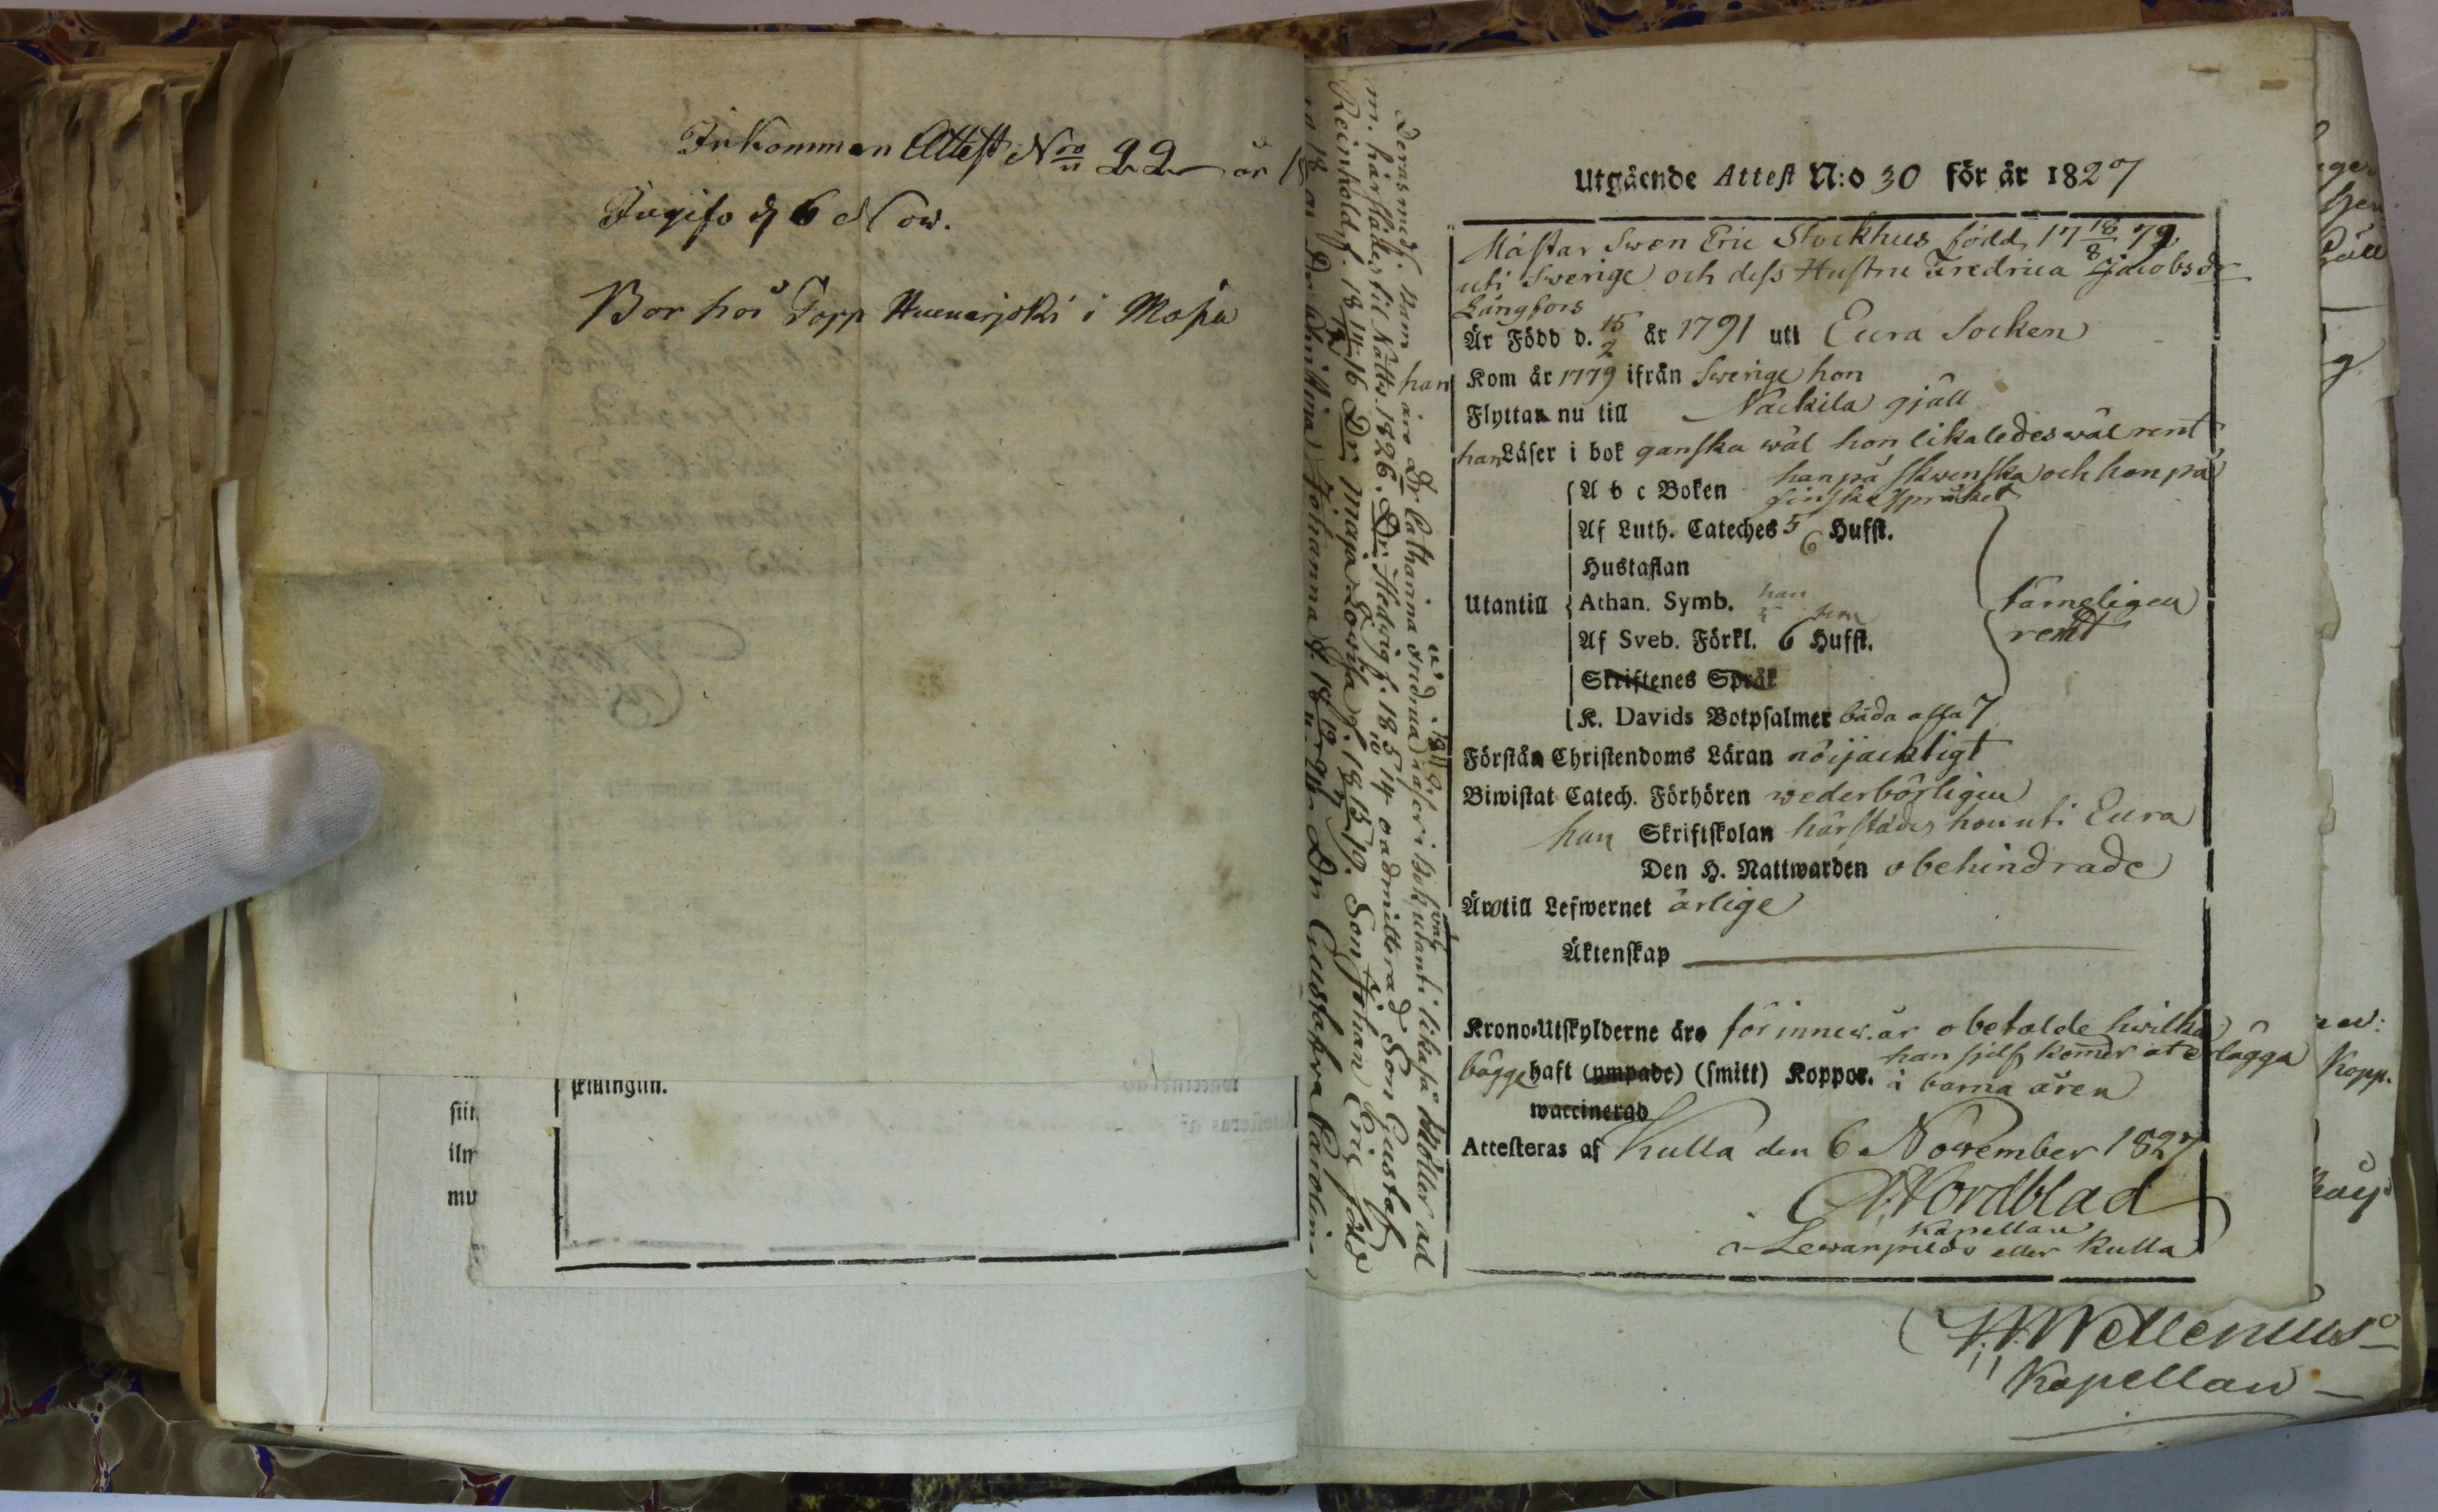 Inkommen Attest Nro 22 år 18
Ingifs d 6 Now.
Bor hos Torp i
Utgående Attest N:o 30 för år 1827
Mästar Swen Eric Stockhus född 17 18/8 79
uti Swerige och dess Hustru Fredrica Jacobsdr
Långfors
Är Född d. 15/2 år 1791 uti Eura Socken
han Kom år 1779 ifrån Swerige hon
Flyttar nu till Nackila gjäll
han Läser i bok ganska wäl hon likaledes wäl rent
han på skwenska och hon på
A b c Boken finska språket
Af Luth. Cateches 5 6 Hufst.
Hustaflan
Utantill Athan. Symb. han hon
Af Sveb. Förkl. 6 Hufst.
tämeligen
rent
Skriftenes Språk
K. Davids Botpsalmer båda alla 7
Förstår Christendoms Läran nöijacktigt
Biwistat Catech. Förhören wederbörligen
han Skriftskolan härstädes hon uti Eura
Den H. Nattwarden obehindrade
Äro till Lefwernet ärlige
Äktenskap
Krono-Utskylderne äro för innew. år obetalde hwilka
han sjelf kommer at erlägga
bägge haft (ympade) (smitt) Koppor. i barna åren
waccinerad
Attesteras af Kulla den 6 November 1827
Nordblad
Kapellan
eller Kulla
Wellenius
Kapellan
Deras med f. barn äro Dr Catharina Fredrica läser i bok utanti likaså ad
m. härstädes til Nattw. 1826. Dr. Hedwig f. 18 5/10 14 oadmitterad Son Gustaf
Reinhold f. 18 14 16 Dr Maja Lowisa f. 18 13 19. Son Johan Eric född
Dr Christina Johanna f. 18 24 Dr Gustafva Carolina
Kopp.